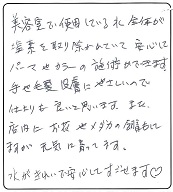 美容室で使用している水全体が
塩素を取り除かれていて安心に
パーマやカラーの施術ができます
手や毛髪、皮膚にやさしいので
仕上りも良いと思います。また、
店内に お花やメダカの
すが 元気に育ってます。
水がきれいで安心してすごせます♡